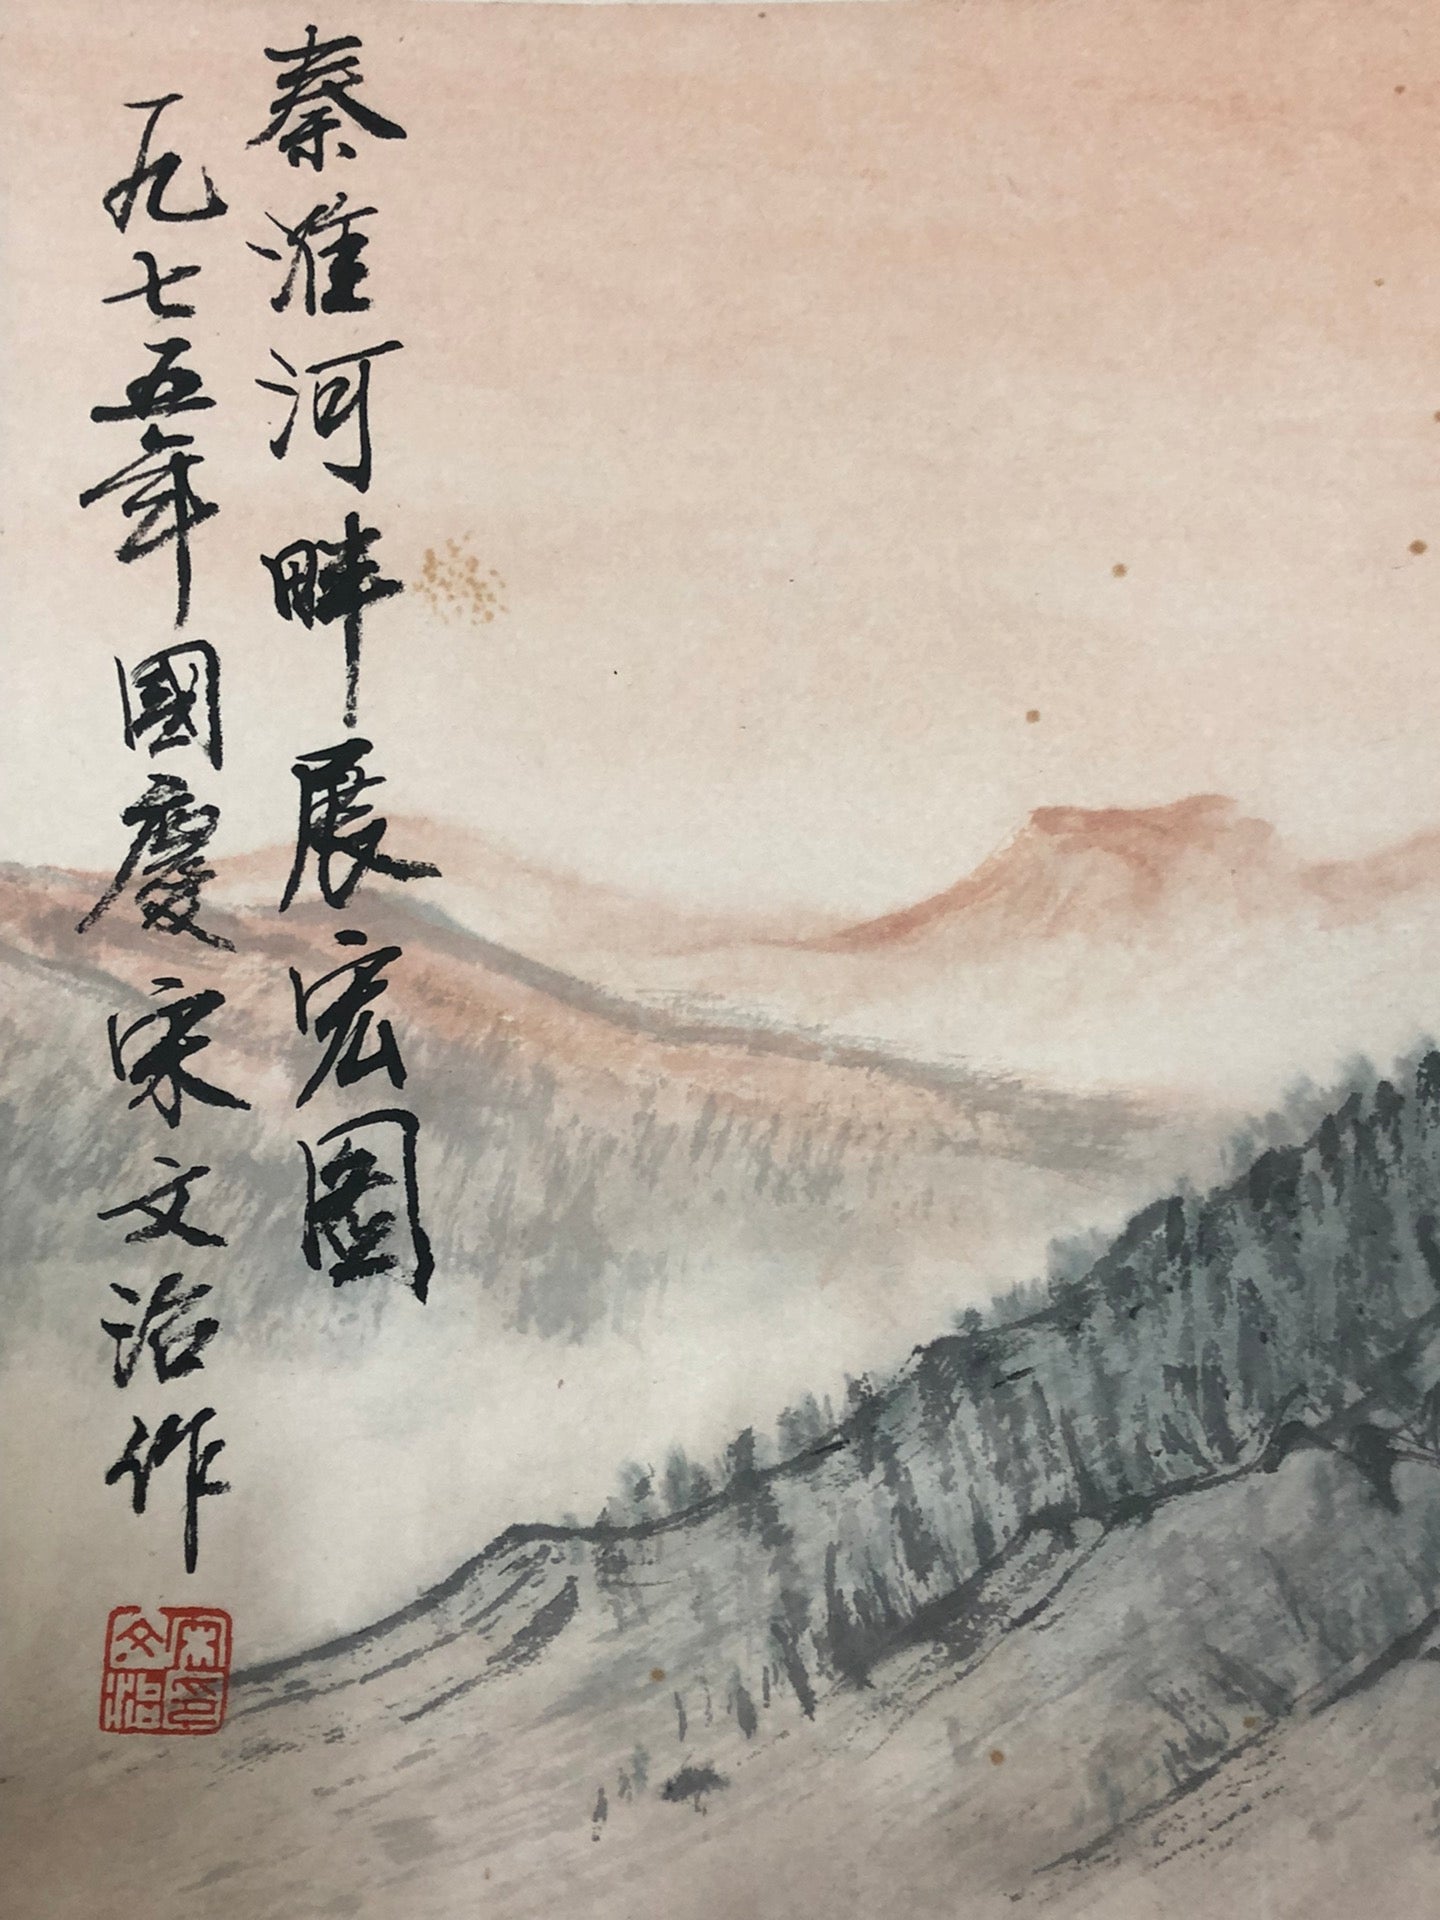 秦淮河畔展宏图
一九七五年國慶宋文治作
宋文治印